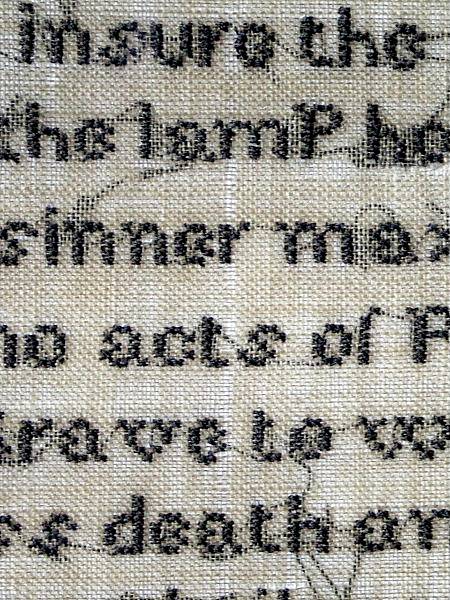 insure the
the lamP ho
sinner may
no acts of P
grave to w
es death an